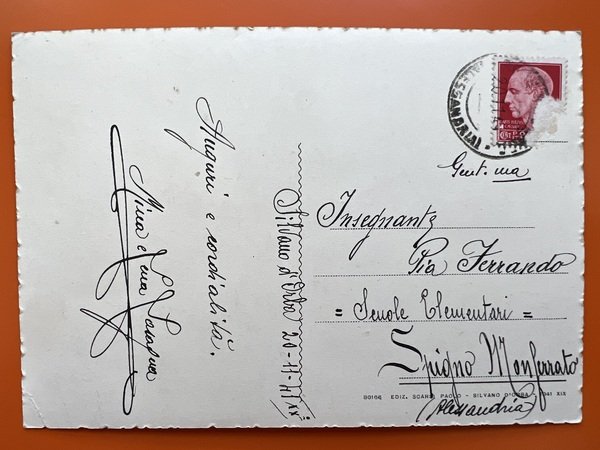 Auguri e cordialità.
Nina e
Silvano d'Orba 20-11-41 XX
ALESSANDRIA
Gent.ma
Insegnante
Pia Ferrando
= Scuole Elementari =
Spigno Monferrato
(Alessandria)
80166 EDIZ. SCARSI PAOLO - SILVANO D'ORBA - 1941 XIX